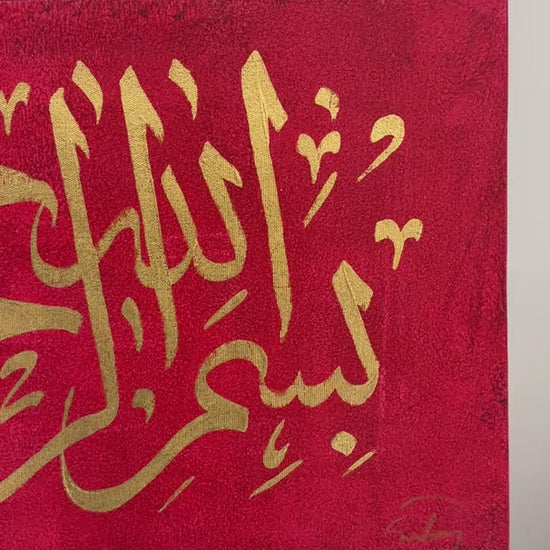 بِسْمِ اللّٰه الر